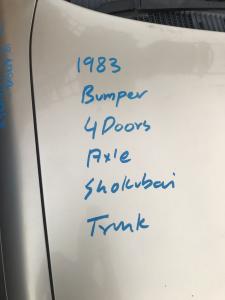 1983
Bumper
4 Doors
Axle
Shokubai
Trunk